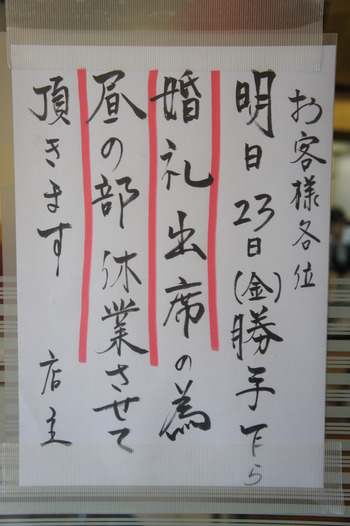 お客様各位
明日23日(金)勝手乍ら
婚礼出席の為
昼の部休業させて
頂きます 店主